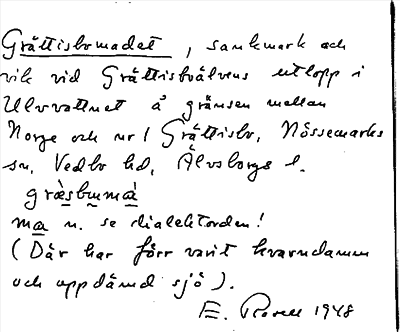 Grättisbomadet, sankmark och
vik vid Grättisboälvens utlopp i
Ulvvattnet å gränsen mellan
Norge och nr 1 Grättisbo, Nössemarks
sn, Vedbo hd, Älvsborgs l.
gräsbumma
ma n. se dialektorden!
(Där har förr varit kvarndamm
och uppdämd sjö).
E. Rosell 1948